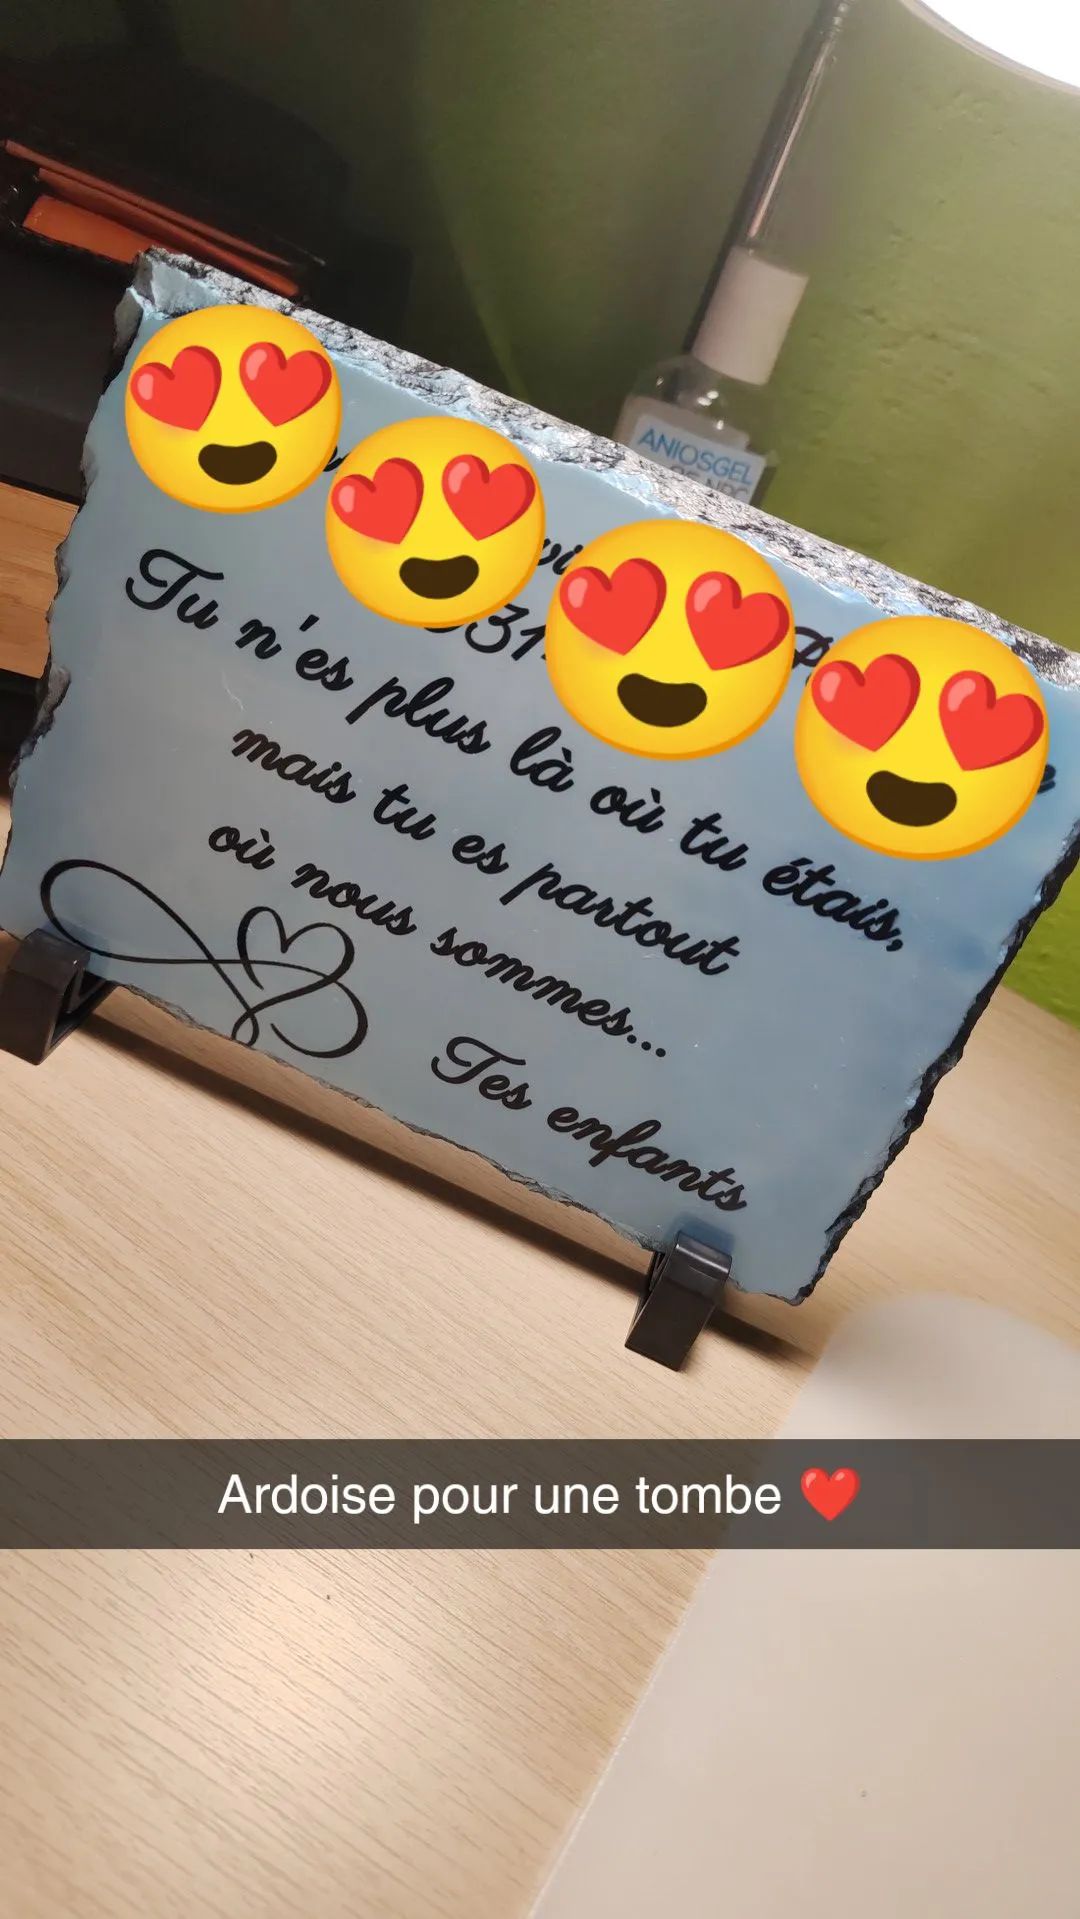 ANIOSGEL
Tu n'es plus là où tu étais,
mais tu es partout
où nous sommes...
Tes enfants
Ardoise pour une tombe ❤️